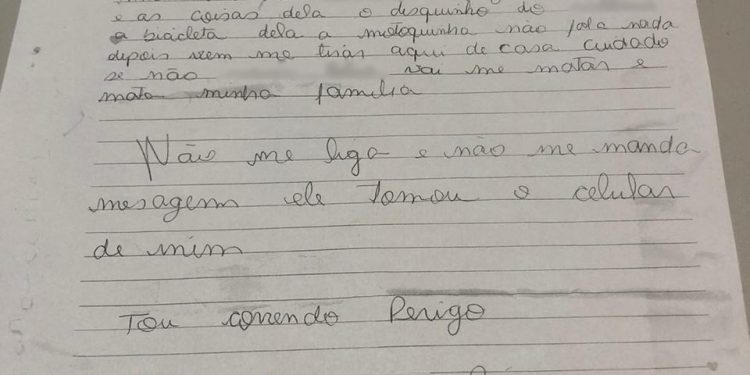 e as coisas dela o desquinho do
a bicicleta dela a motoquinha não fala nada
depois vem me tirar aqui de casa cuidado
se não vai me matar e
mata minha família
Não me liga e não me manda
mesagem ele tomou o celular
de mim
Tou correndo Perigo